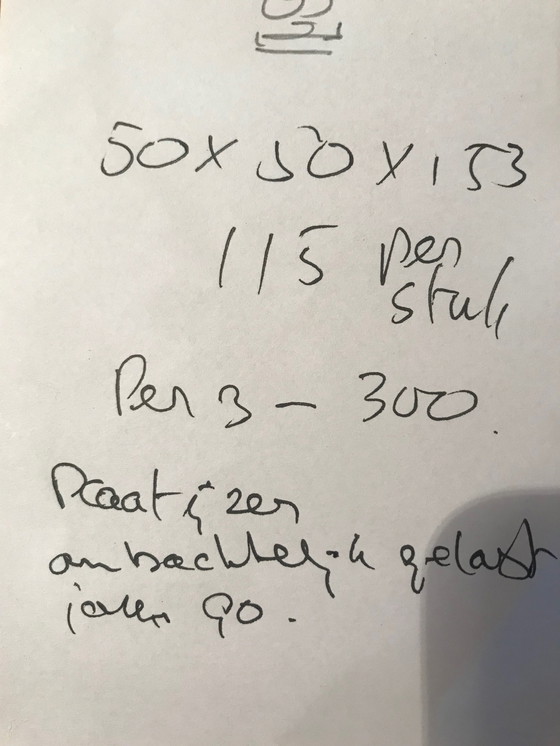 50 x 50 x 153
115 per
stuk
Per 3 - 300.
Plaatijzer
ambachtelijk gelast
jaren 90.